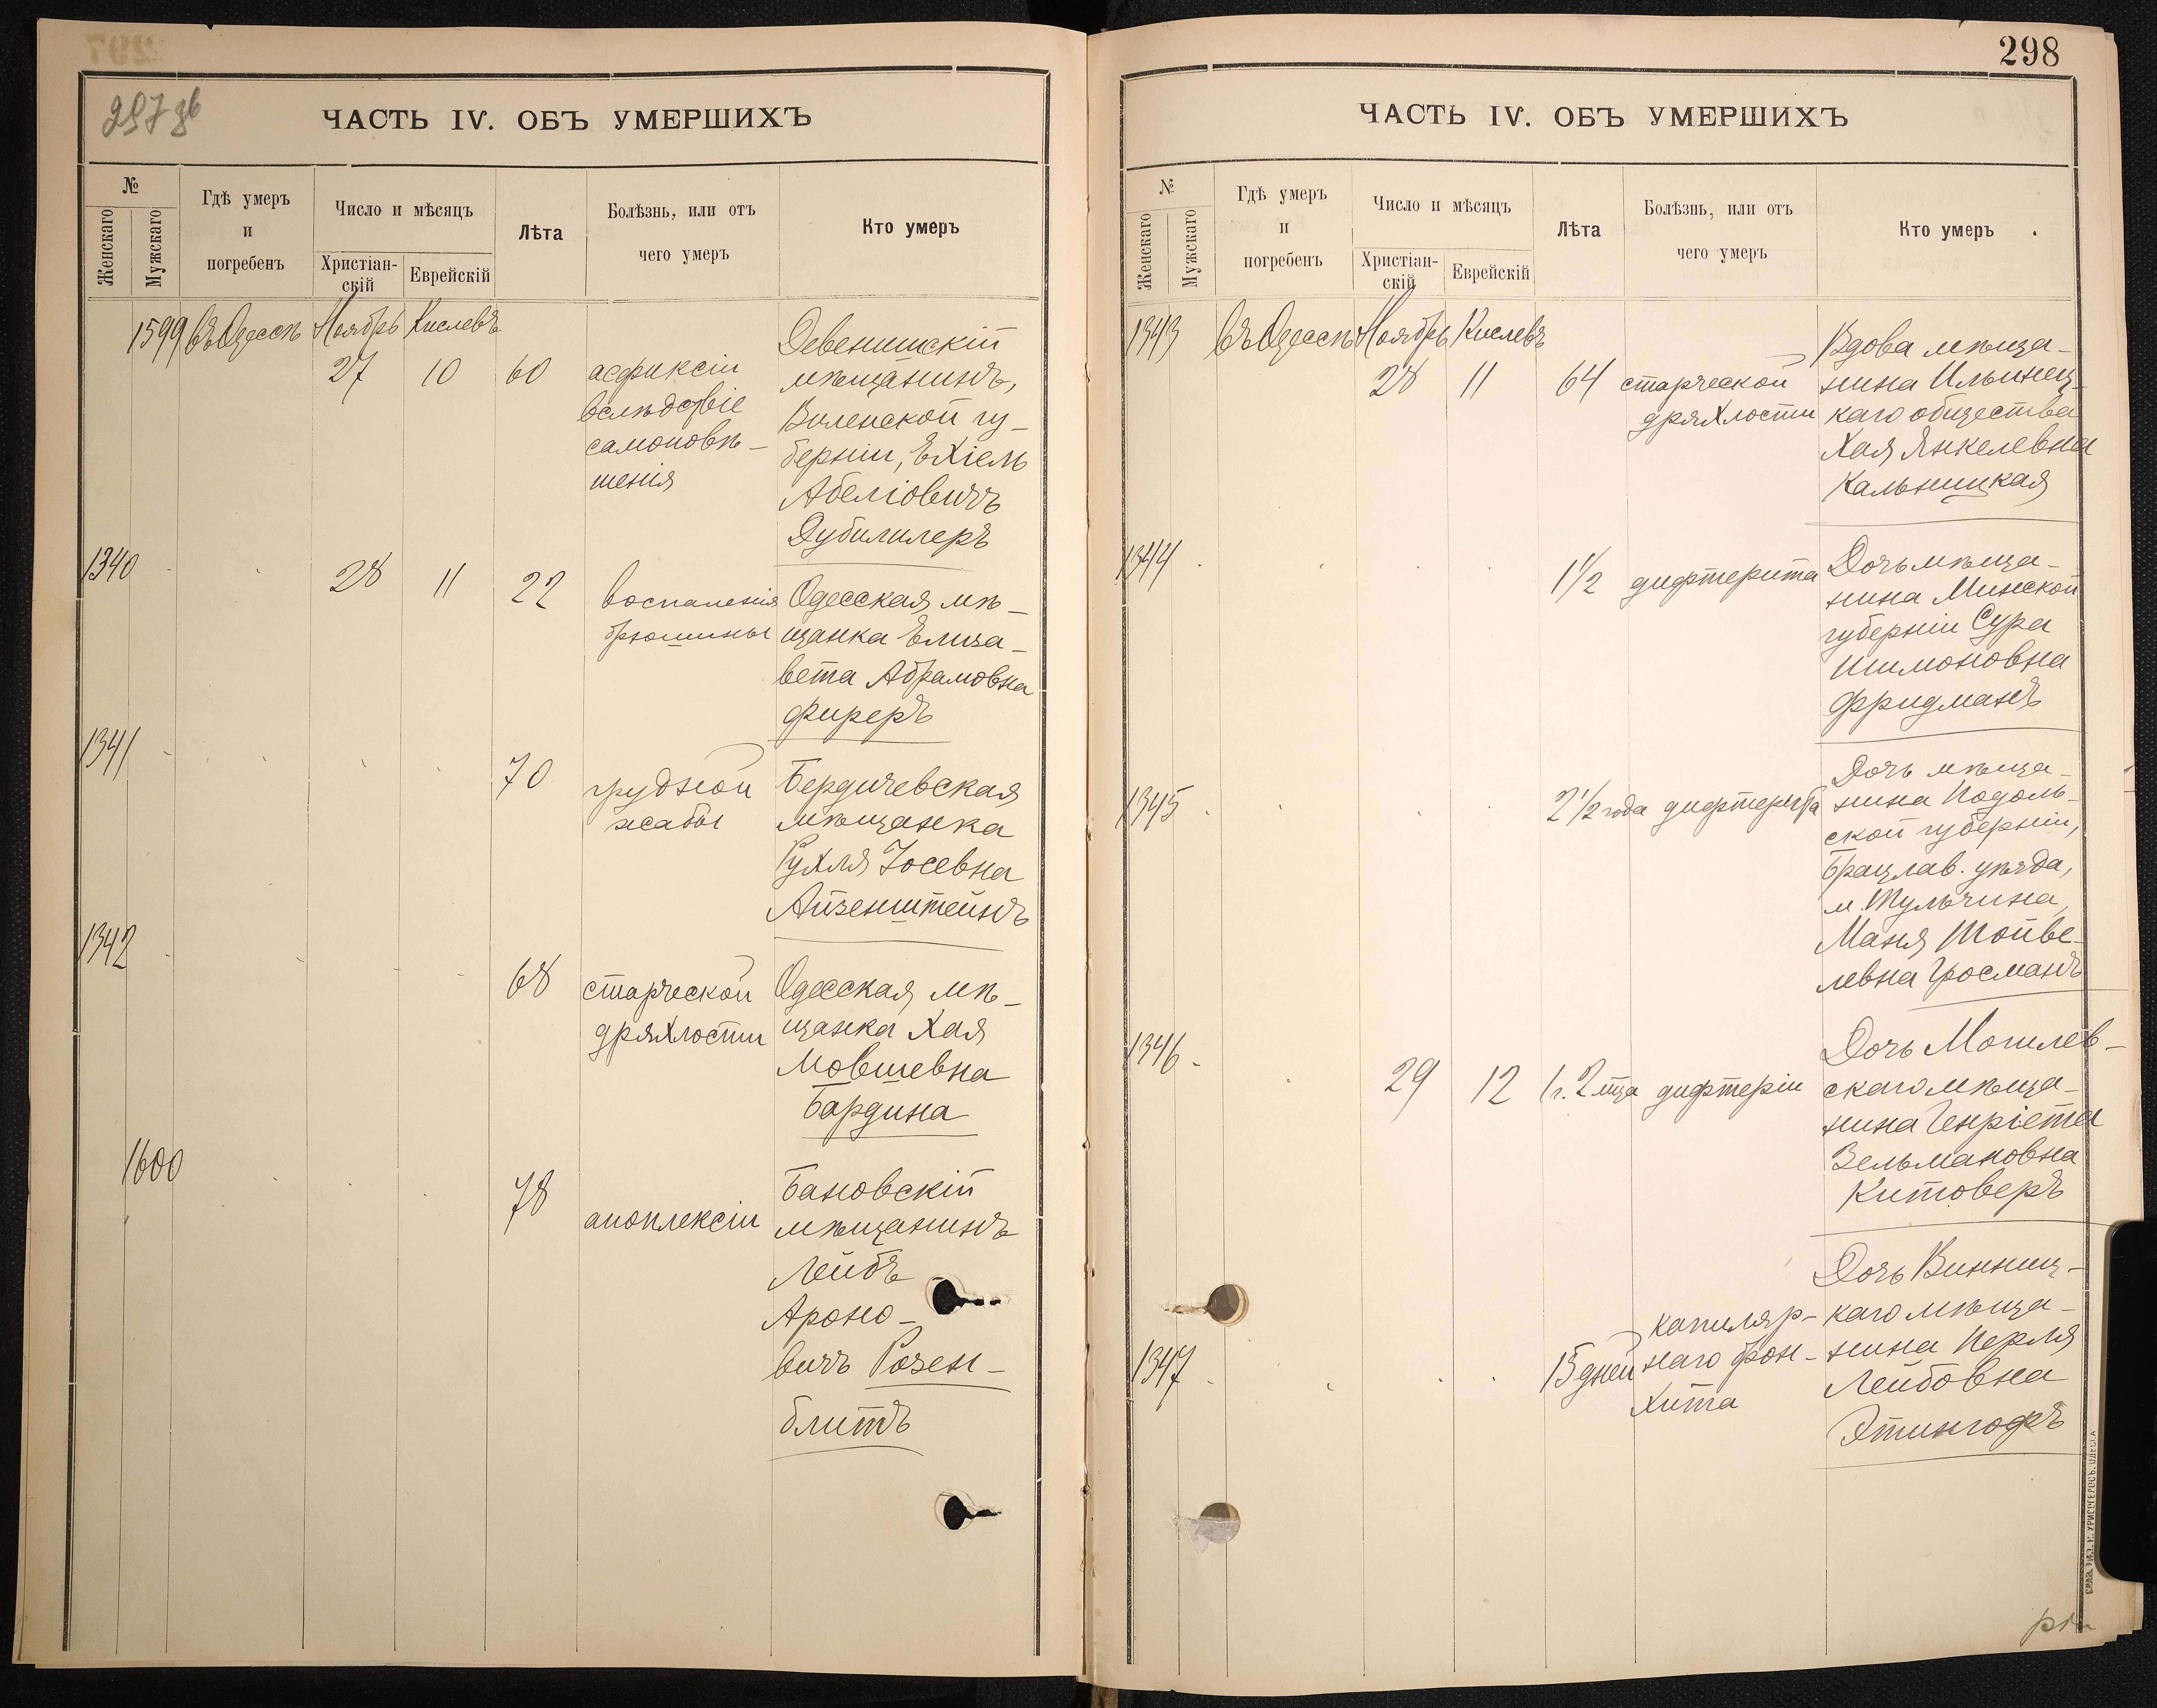 297 об
ЧАСТЬ IV. ОБЪ УМЕРШИХЪ
№
Женскаго
Мужскаго
Гдѣ умеръ
и
погребенъ
Число и мѣсяцъ
Христіан-
скій
Еврейскій
Лѣта
Болѣзнь, или отъ
чего умеръ
Кто умеръ
1599 въ Одессѣ Ноябрь Кислевъ
27 10 60
асфиксіи
вслѣдствіе
самоповѣ-
шенія
Девенишскій
мѣщанинъ,
Виленской гу-
берніи, Ехіель
Абеліовичъ
Дубилилеръ
1340 28 11 22
воспаленія
брюшины
Одесская мѣ-
щанка Елиза-
вета Абрамовна
Фиреръ
1341 70
грудной
жабы
Бердичевская
мѣщанка
Рухля Іосевна
Айзенштейнъ
1342 68
старческой
дряхлости
Одесская мѣ-
щанка Хая
Мовшевна
Бардина
1600 78
апоплексіи
Бановскій
мѣщанинъ
Лейбъ
Ароно-
вичъ Розен-
блитъ
298
ЧАСТЬ IV. ОБЪ УМЕРШИХЪ
№
Женскаго
Мужскаго
Гдѣ умеръ
и
погребенъ
Число и мѣсяцъ
Христіан-
скій
Еврейскій
Лѣта
Болѣзнь, или отъ
чего умеръ
Кто умеръ
1343 въ Одессѣ Ноябрь Кислевъ
28 11 64
старческой
дряхлости
Вдова мѣща-
нина Ильинец-
каго общества
Хая Янкелевна
Кальницкая
1344 1 1/2 дифтерита
Дочь мѣща-
нина Минской
губерніи Сура
Шимоновна
Фридманъ
1345 2 1/2 года дифтерита
Дочь мѣща-
нина Подоль-
ской губерніи,
Брацлав. уѣзда,
м. Тульчина,
Маня Тойве-
левна Гросманъ
1346 29 12 1 г. 2 мѣца дифтеріи
Дочь Могилев-
скаго мѣща-
нина Генріета
Зельмановна
Китоверъ
1347 15 дней
капиляр-
наго брон-
хита
Дочь Винниц-
каго мѣща-
нина Перля
Лейбовна
Этингофъ